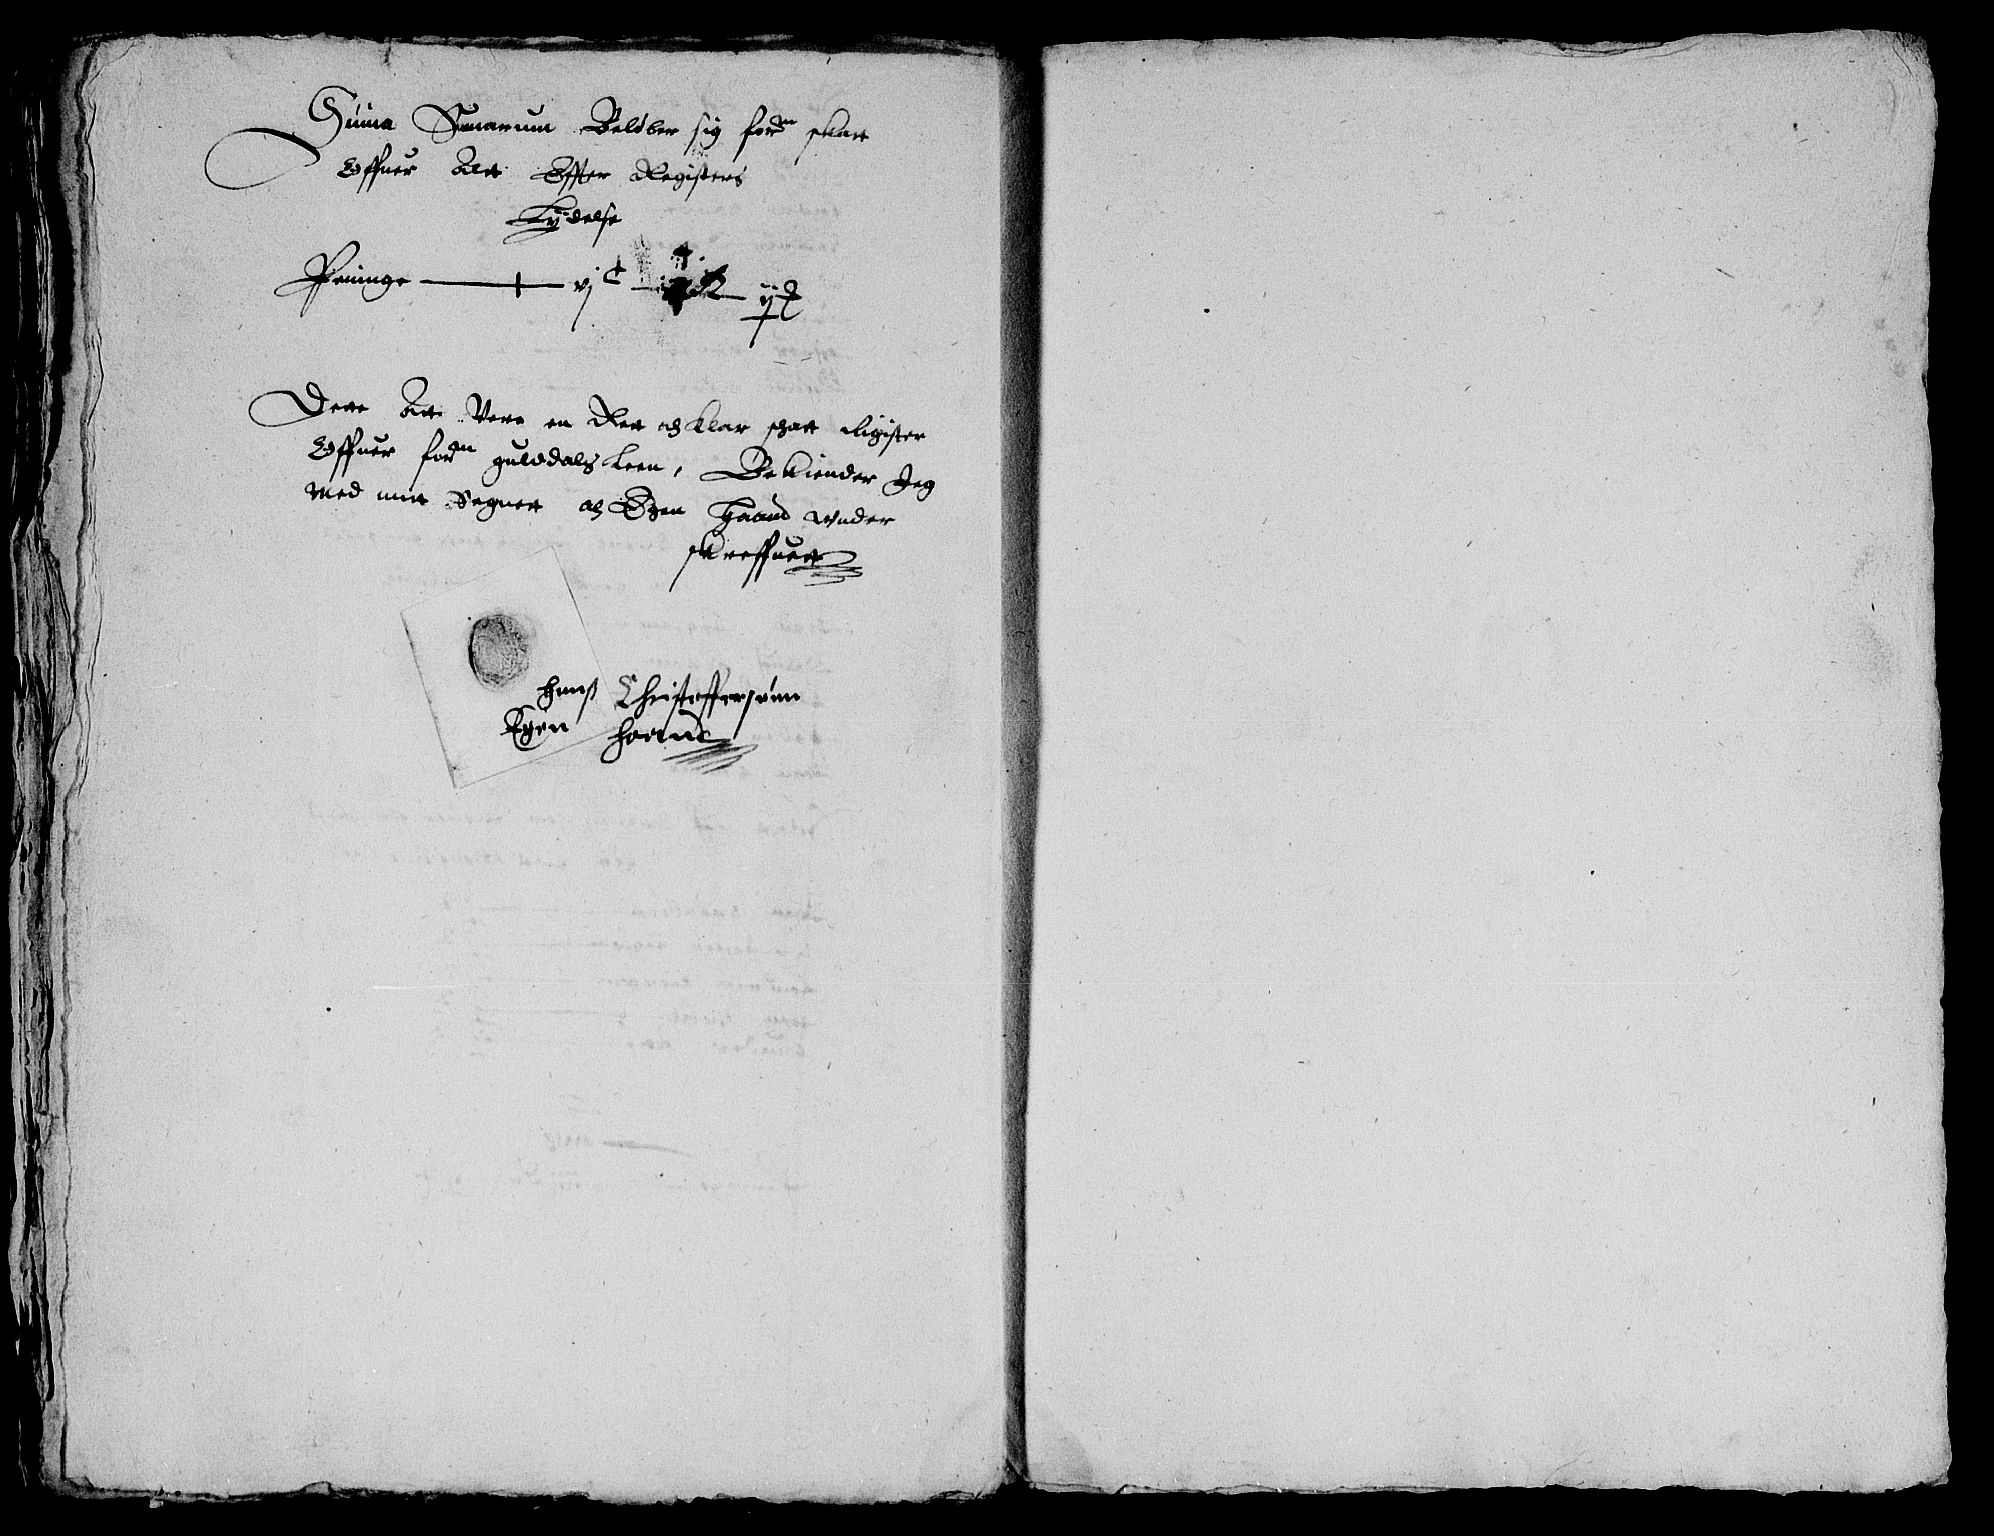 Suma Sumarum Beløber sig forn skatt
Offuer Alt Effter Registers
Lydelse
Peninge vj C ij
Dette Att Vere en Ret och klar schatt Rigister
Offuer forn guldals Leen, Bekiender Jeg
med mitt Segnet och Egen Haand wnder
skreffuett
Hanß Christoffersønn
Egen Haand